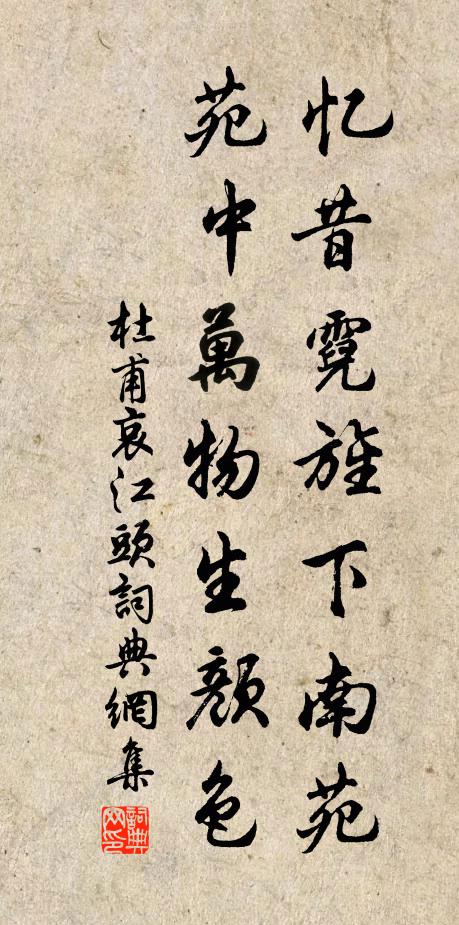 忆昔霓旌下南苑
苑中萬物生顏色
杜甫哀江頭詞典網集
詞典
网印